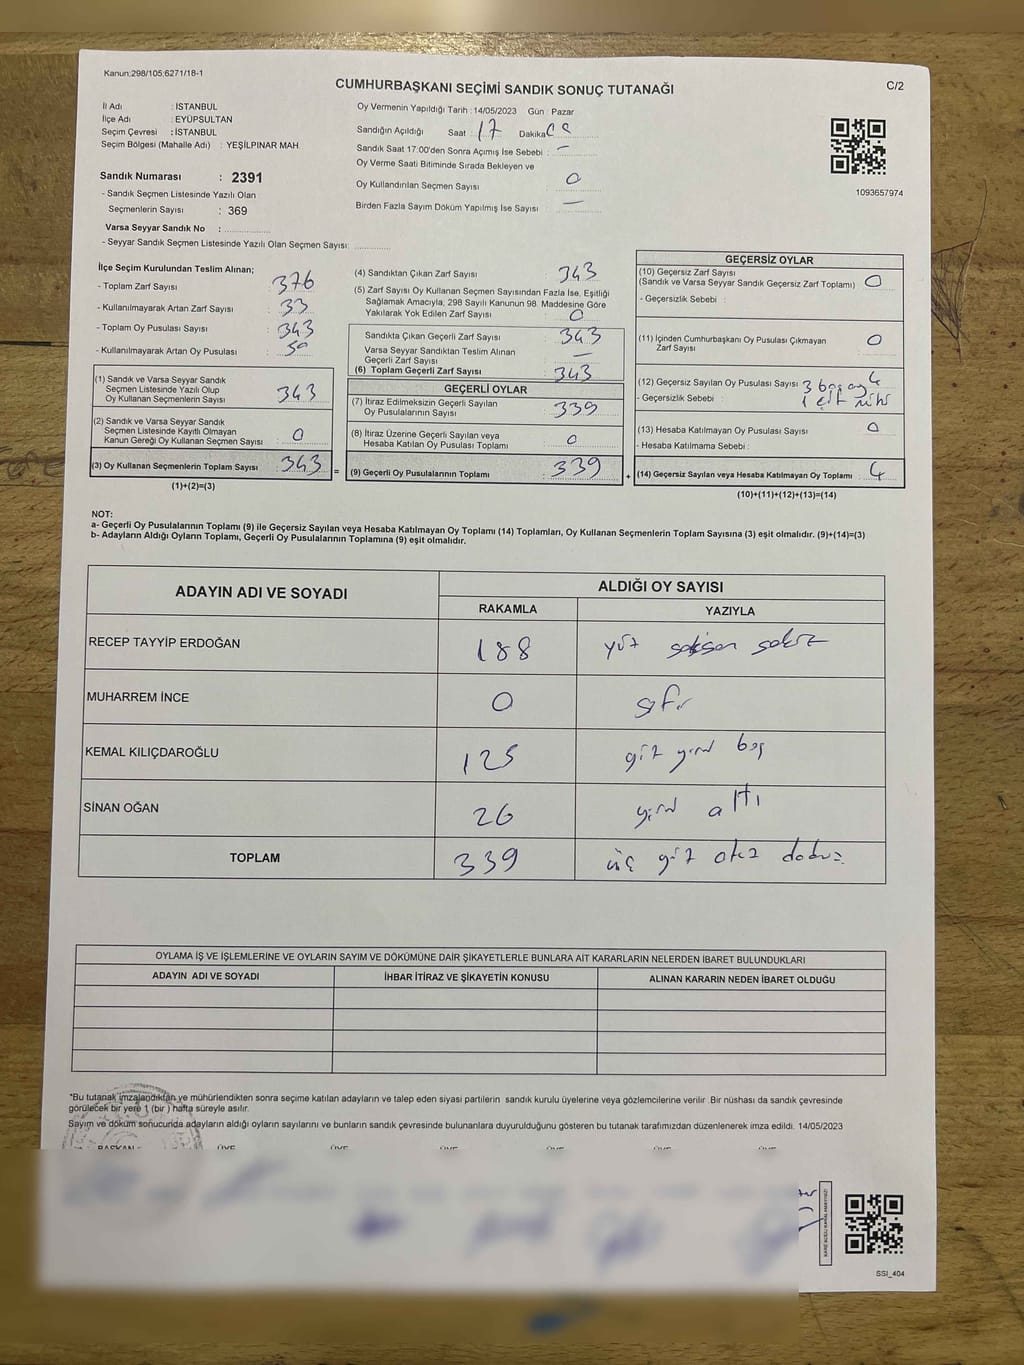 Kanun:298/105;6271/18-1
CUMHURBAŞKANI SEÇİMİ SANDIK SONUÇ TUTANAĞI
C/2
İl Adı : İSTANBUL
İlçe Adı : EYÜPSULTAN
Seçim Çevresi : İSTANBUL
Seçim Bölgesi (Mahalle Adı) : YEŞİLPINAR MAH
Oy Vermenin Yapıldığı Tarih : 14/05/2023 Gün : Pazar
Sandığın Açıldığı Saat : 17 Dakika
Sandık Saat 17:00'den Sonra Açımış İse Sebebi : –
Oy Verme Saati Bitiminde Sırada Bekleyen ve
Oy Kullandırılan Seçmen Sayısı : 0
Birden Fazla Sayım Döküm Yapılmış İse Sayısı : –
1093657974
Sandık Numarası : 2391
- Sandık Seçmen Listesinde Yazılı Olan
Seçmenlerin Sayısı : 369
Varsa Seyyar Sandık No :
- Seyyar Sandık Seçmen Listesinde Yazılı Olan Seçmen Sayısı:
İlçe Seçim Kurulundan Teslim Alınan;
- Toplam Zarf Sayısı : 376
- Kullanılmayarak Artan Zarf Sayısı : 33
- Toplam Oy Pusulası Sayısı : 343
- Kullanılmayarak Artan Oy Pusulası :
(1) Sandık ve Varsa Seyyar Sandık
Seçmen Listesinde Yazılı Olup
Oy Kullanan Seçmenlerin Sayısı : 343
(2) Sandık ve Varsa Seyyar Sandık
Seçmen Listesinde Kayıtlı Olmayan
Kanun Gereği Oy Kullanan Seçmen Sayısı : 0
(3) Oy Kullanan Seçmenlerin Toplam Sayısı : 343 =
(1)+(2)=(3)
(4) Sandıktan Çıkan Zarf Sayısı : 343
(5) Zarf Sayısı Oy Kullanan Seçmen Sayısından Fazla İse, Eşitliği
Sağlamak Amacıyla; 298 Sayılı Kanunun 98. Maddesine Göre
Yakılarak Yok Edilen Zarf Sayısı : 0
Sandıkta Çıkan Geçerli Zarf Sayısı : 343
Varsa Seyyar Sandıktan Teslim Alınan
Geçerli Zarf Sayısı : –
(6) Toplam Geçerli Zarf Sayısı : 343
GEÇERLİ OYLAR
(7) İtiraz Edilmeksizin Geçerli Sayılan
Oy Pusulalarının Sayısı : 339
(8) İtiraz Üzerine Geçerli Sayılan veya
Hesaba Katılan Oy Pusulası Toplamı : 0
(9) Geçerli Oy Pusulalarının Toplamı : 339 +
GEÇERSİZ OYLAR
(10) Geçersiz Zarf Sayısı
(Sandık ve Varsa Seyyar Sandık Geçersiz Zarf Toplamı) : 0
- Geçersizlik Sebebi :
(11) İçinden Cumhurbaşkanı Oy Pusulası Çıkmayan
Zarf Sayısı : 0
(12) Geçersiz Sayılan Oy Pusulası Sayısı : 4
- Geçersizlik Sebebi : 3 boş oy 1 çift mühür
(13) Hesaba Katılmayan Oy Pusulası Sayısı : 0
- Hesaba Katılmama Sebebi :
(14) Geçersiz Sayılan veya Hesaba Katılmayan Oy Toplamı : 4
(10)+(11)+(12)+(13)=(14)
NOT:
a- Geçerli Oy Pusulalarının Toplamı (9) ile Geçersiz Sayılan veya Hesaba Katılmayan Oy Toplamı (14) Toplamları, Oy Kullanan Seçmenlerin Toplam Sayısına (3) eşit olmalıdır. (9)+(14)=(3)
b- Adayların Aldığı Oyların Toplamı, Geçerli Oy Pusulalarının Toplamına (9) eşit olmalıdır.
ADAYIN ADI VE SOYADI
ALDIĞI OY SAYISI
RAKAMLA YAZIYLA
RECEP TAYYİP ERDOĞAN 188 yüz seksen sekiz
MUHARREM İNCE 0 sıfır
KEMAL KILIÇDAROĞLU 125 yüz yirmi beş
SİNAN OĞAN 26 yirmi altı
TOPLAM 339 üç yüz otuz dokuz
OYLAMA İŞ VE İŞLEMLERİNE VE OYLARIN SAYIM VE DÖKÜMÜNE DAİR ŞİKAYETLERLE BUNLARA AİT KARARLARIN NELERDEN İBARET BULUNDUKLARI
ADAYIN ADI VE SOYADI İHBAR İTİRAZ VE ŞİKAYETİN KONUSU ALINAN KARARIN NEDEN İBARET OLDUĞU
*Bu tutanak imzalandıktan ve mühürlendikten sonra seçime katılan adayların ve talep eden siyasi partilerin sandık kurulu üyelerine veya gözlemcilerine verilir. Bir nüshası da sandık çevresinde
görülecek bir yere 1 (bir) hafta süreyle asılır.
Sayım ve döküm sonucunda adayların aldığı oyların sayılarını ve bunların sandık çevresinde bulunanlara duyurulduğunu gösteren bu tutanak tarafımızdan düzenlenerek imza edildi. 14/05/2023
BAŞKAN ÜYE ÜYE ÜYE ÜYE ÜYE ÜYE
SSI_404